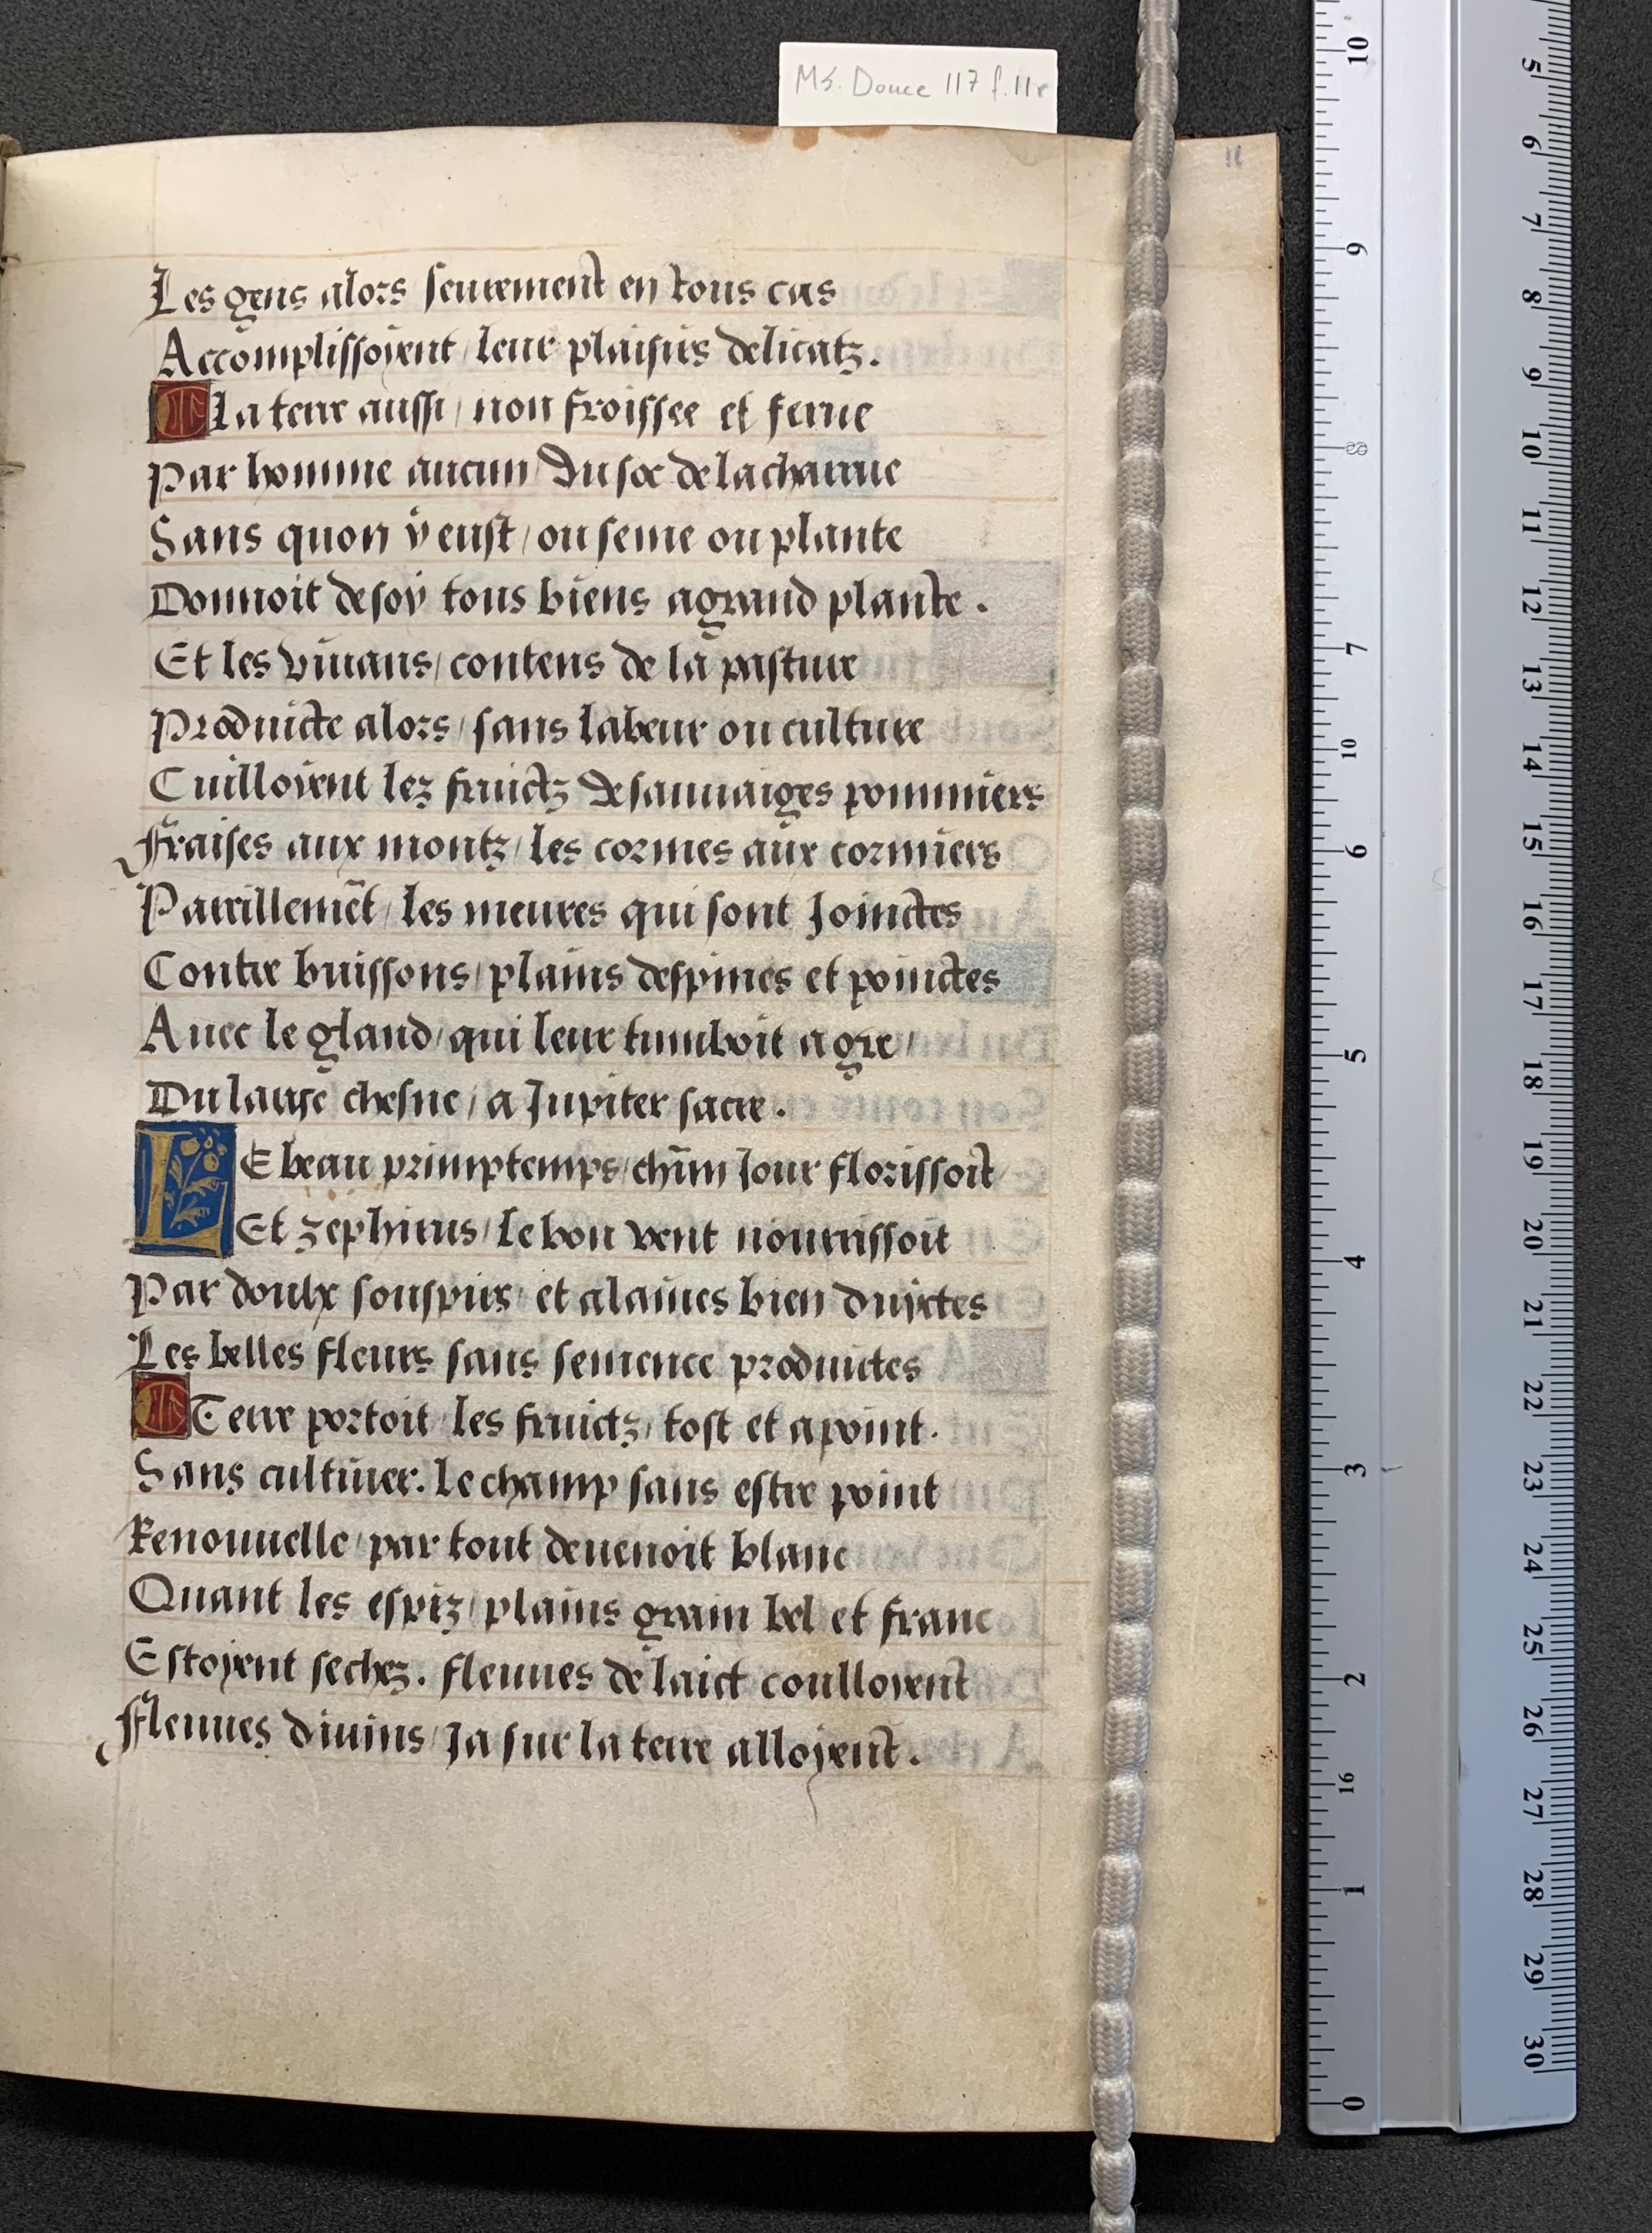 Ms. Douce 117 f.11r
11
Les gens alors seurement en tous cas
Accomplissoyent / leur plaisirs delicatz.
La terre aussi / non froissee et ferue
Par homme aucun / du soc de la charrue
Sans quon y eust / ou seme ou plante
Donnoit de soy tous biens a grand plante.
Et les viuans / contens de la pasture
Produicte alors / sans labeur ou culture
Cuilloyent lez fruictz de sauuaiges pommiers
Fraises aux montz / les cormes aux cormiers
Pareillemẽt / les meures qui sont Joinctes
Contre buissons / plains despines et poinctes
Auec le gland / qui leur tumboit a gre /
Du large chesne / a Jupiter sacre.
LE beau primptemps / chũn Jour florissoit /
Et zephirus / le bon vent nourrissoit
Par doulx souspirs / et alaines bien duyctes
Les belles fleurs sans semence produictes
Terre portoit / les fruictz / tost et a point.
Sans cultiuer. Le champ sans estre point
Renouuelle / par tout deuenoit blanc
Quant les espiz / plains grain bel et franc
Estoyent sechez. fleuues de laict coulloyent
Fleuues diuins / Ja sur la terre alloyent.
10
9
8
7
6
5
4
3
2
1
0
10
16
5
6
7
8
9
10
11
12
13
14
15
16
17
18
19
20
21
22
23
24
25
26
27
28
29
30